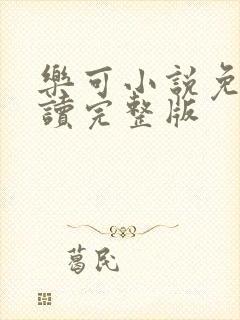 樂可小說免
讀完整版
葛民